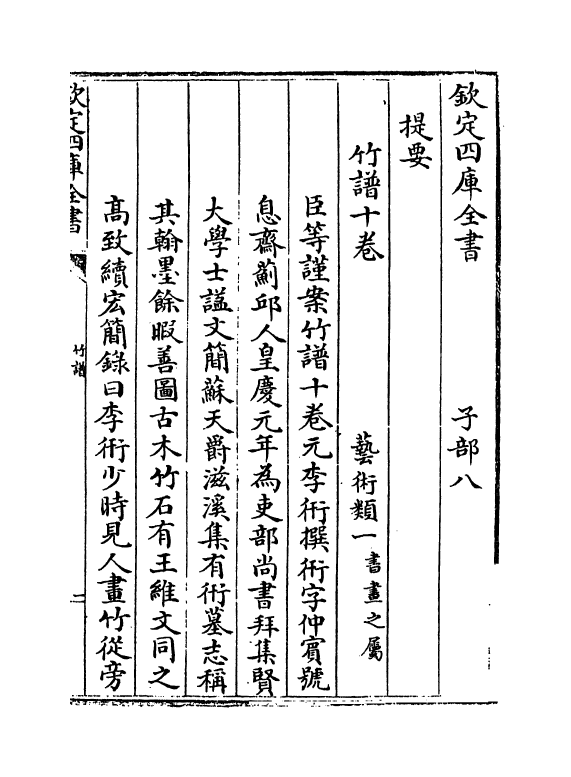 欽定四庫全書　子部八
提要
竹譜十卷　藝術類一書畫之屬
臣等謹案竹譜十卷元李衎撰衎字仲賓號
息齋薊邱人皇慶元年為吏部尚書拜集賢
大學士諡文簡蘇天爵滋溪集有衎墓志稱
其翰墨餘暇善圖古木竹石有王維文同之
高致續宏簡錄曰李衎少時見人畫竹從旁
欽定四庫全書
竹譜
二